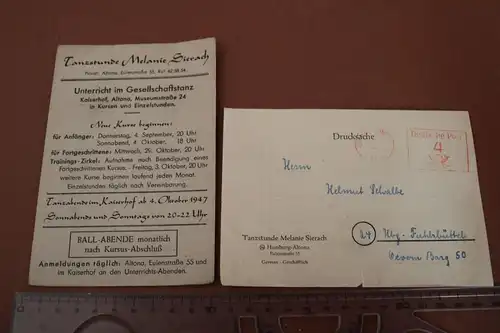 Tanzstunde Melanie Sierach
Privat: Altona, Eulenstraße 55, Ruf 42 58 24
Unterricht im Gesellschaftstanz
Kaiserhof, Altona, Museumstraße 24
in Kursen und Einzelstunden.
Neue Kurse beginnen:
für Anfänger: Donnerstag, 4. September, 20 Uhr
Sonnabend, 4. Oktober, 18 Uhr
für Fortgeschrittene: Mittwoch, 29. Oktober, 20 Uhr
Trainings-Zirkel: Aufnahme nach Beendigung eines
Fortgeschrittenen Kursus. - Freitag, 3. Oktober, 20 Uhr
weitere Kurse beginnen laufend jeden Monat.
Einzelstunden täglich nach Vereinbarung.
Tanzabende im Kaiserhof ab 4. Oktober 1947
Sonnabends und Sonntags von 20-22 Uhr
BALL-ABENDE monatlich
nach Kursus-Abschluß
Anmeldungen täglich: Altona, Eulenstraße 55 und
im Kaiserhof an den Unterrichts-Abenden.
Drucksache
Deutsche Post
4
Herrn
Helmut
Tanzstunde Melanie Sierach
Hamburg-Altona
Eulenstraße 55
24 Hbg.-Fuhlsbüttel
50